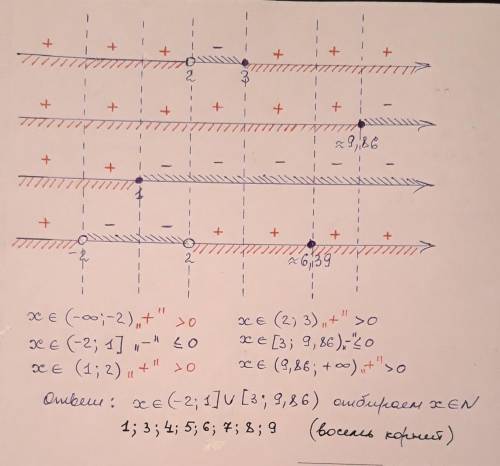 + + + - + + +
2 3
+ + + + + + -
≈9,86
+ + - - - - -
1
+ - - + + + +
-2 2 ≈6,39
x∈(-∞;-2) „+" >0 x∈(2;3) „+" >0
x∈(-2;1] „-" ≤0 x∈[3;9,86) „-" ≤0
x∈(1;2) „+" >0 x∈(9,86;+∞) „+" >0
Ответ: x∈(-2;1]∪[3;9,86) отбираем x∈N
1; 3; 4; 5; 6; 7; 8; 9 (восемь корней)